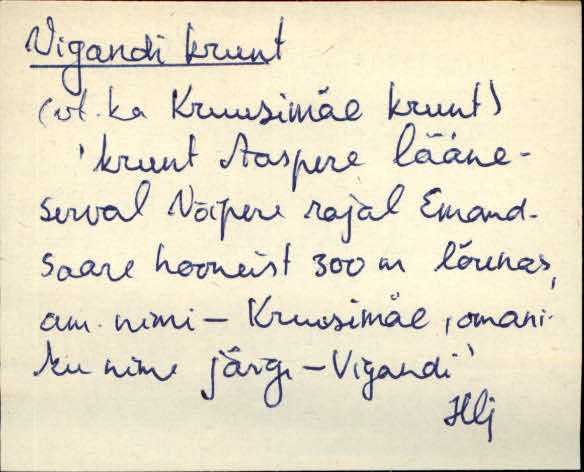 Vigandi krunt
(vt. ka Kruusimäe krunt)
'krunt Aaspere lääne-
serval Võipere rajal Emand-
saare hooneist 300 m lõunas,
am. nimi – Kruusimäe, omani-
ku nime järgi – Vigandi'
Hlj